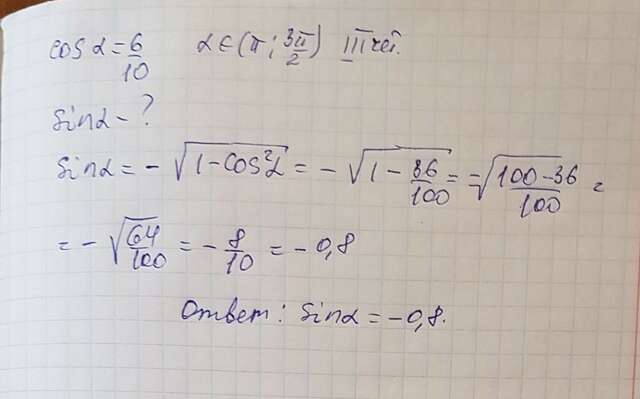 cos α = 6/10 α ∈ (π; 3π/2) III чет.
sin α - ?
sin α = - √(1 - cos²α) = - √(1 - 36/100) = - √((100 - 36)/100) =
= - √(64/100) = - 8/10 = - 0,8
Ответ: sin α = - 0,8.